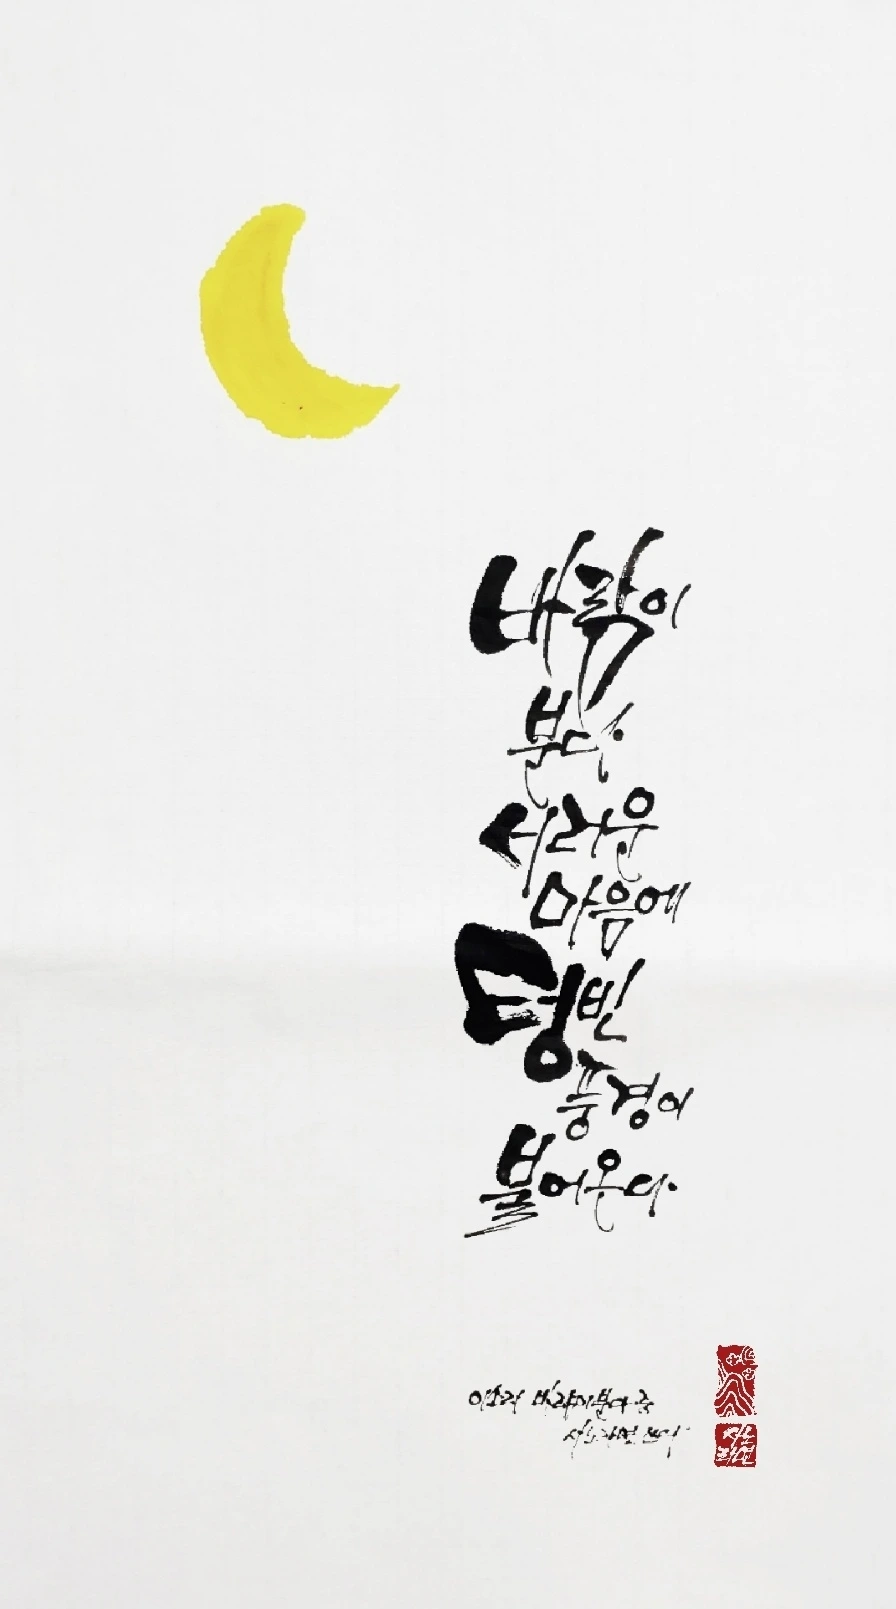 바람이
분다.
서러운
마음에
텅 빈
풍경이
불어온다.
이소라 바람이 분다 중